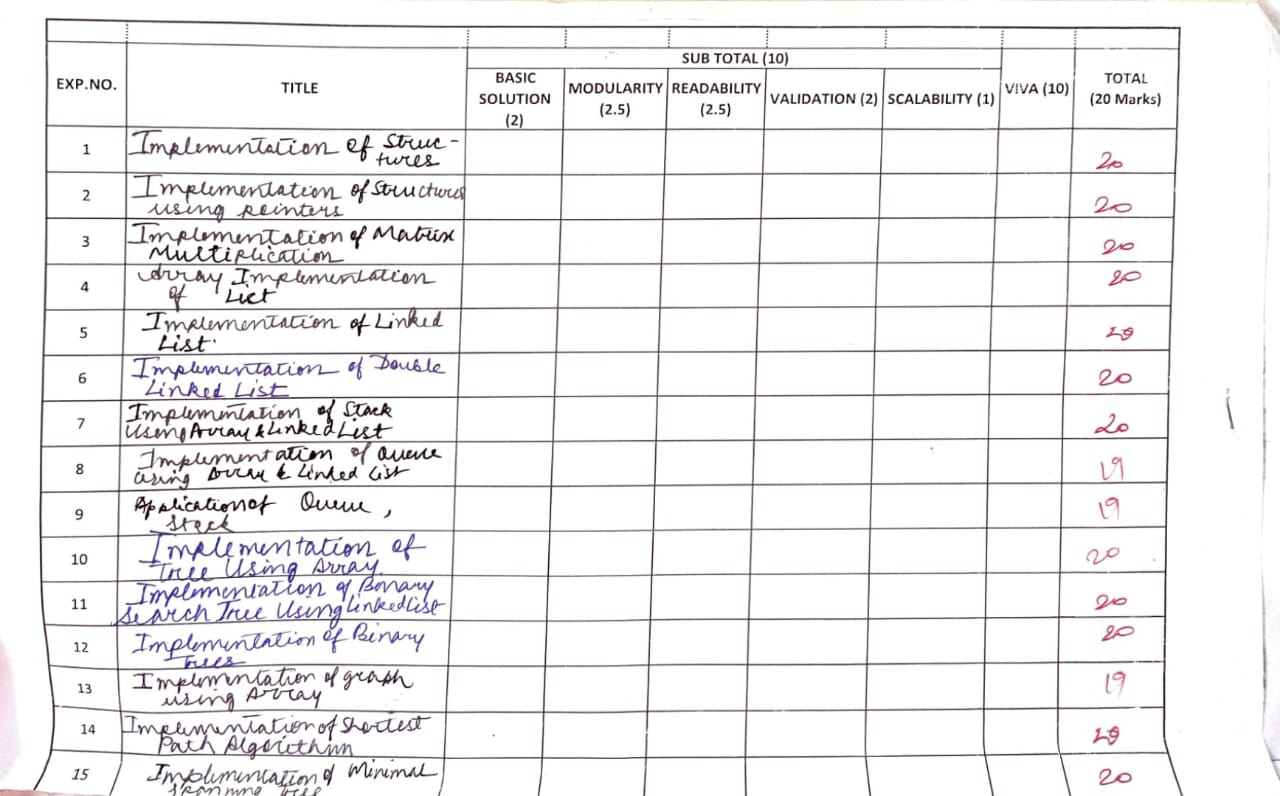 SUB TOTAL (10)
EXP.NO. TITLE BASIC SOLUTION (2) MODULARITY (2.5) READABILITY (2.5) VALIDATION (2) SCALABILITY (1) VIVA (10) TOTAL (20 Marks)
1 Implementation of Struc-
tures 20
2 Implementation of Structures
using pointers 20
3 Implementation of Matrix
Multiplication 20
4 Array Implementation 20
of List
5 Implementation of Linked
List.
6 Implementation of Double
Linked List 20
7 Implementation of Stack
Using Array & Linked List 20
8 Implementation of Queue
using Array & Linked List 19
9 Application of Queue, 19
Stack
10 Implementation of
Tree Using Array 20
11 Implementation of Bonary
Search Tree Using Linked List 20
12 Implementation of Binary 20
Trees
13 Implementation of graph 19
using Array
14 Implementation of Shortest
Path Algorithm
15 Implementation of Minimal 20